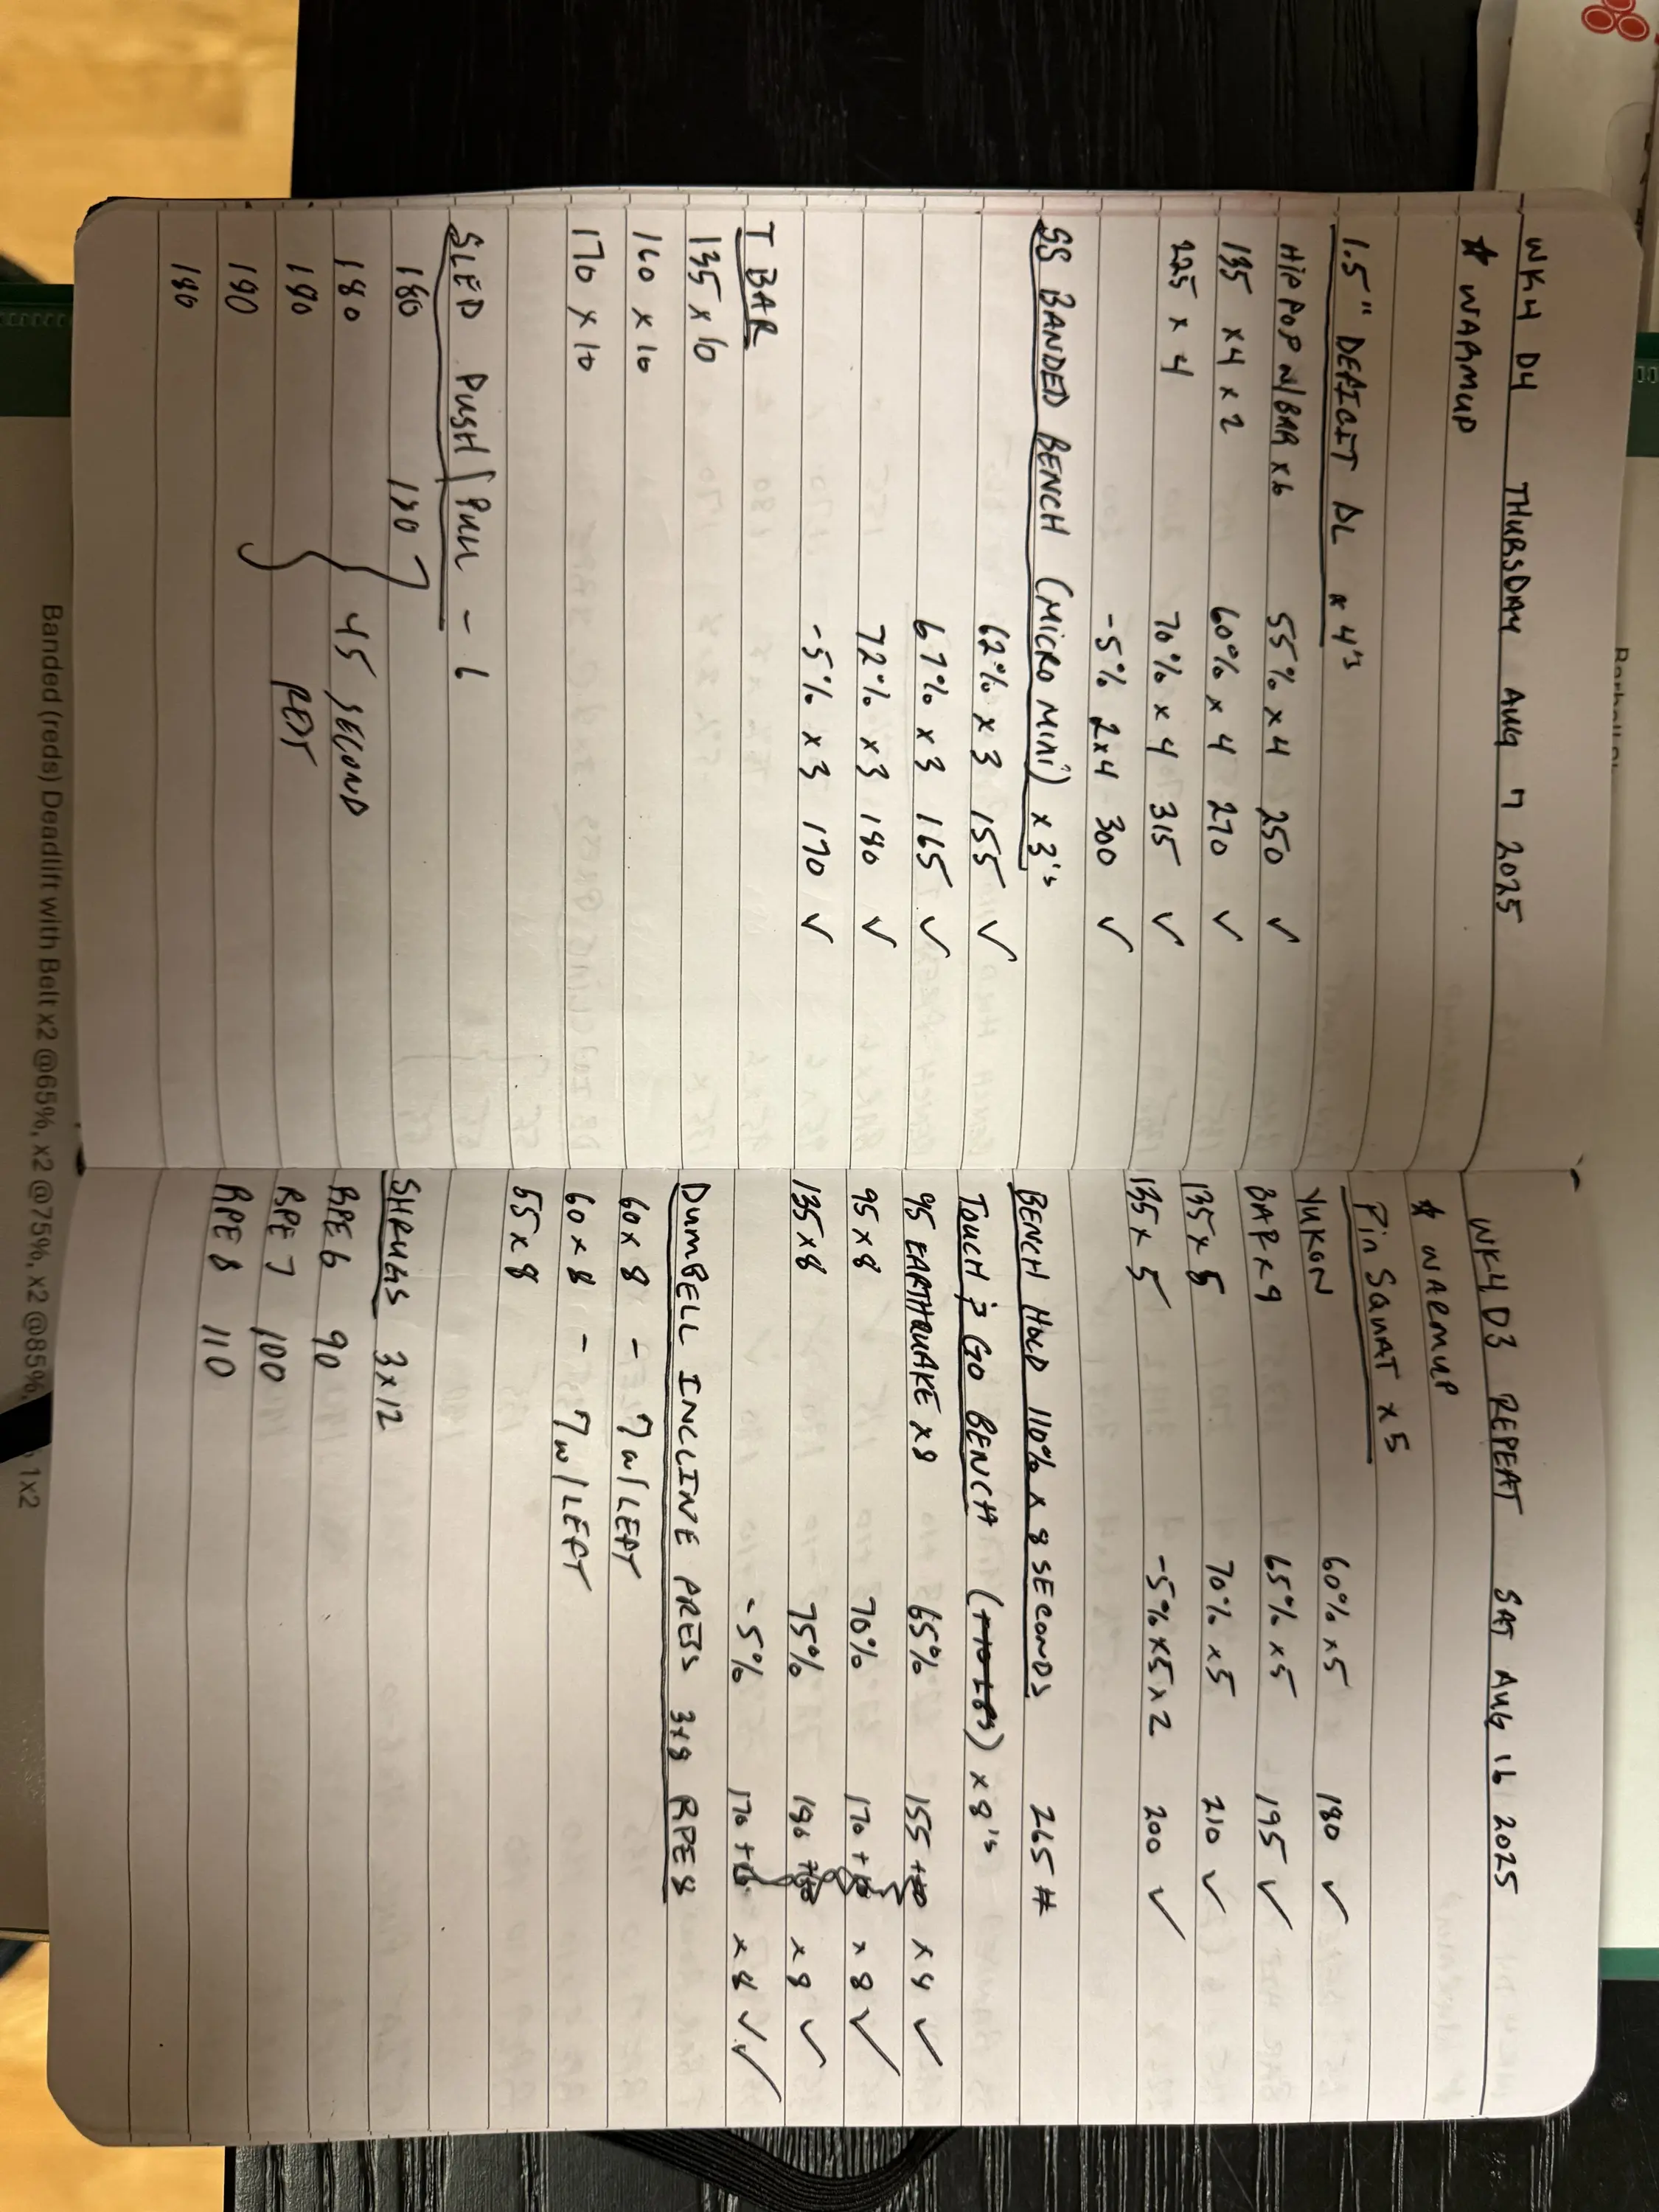 WK4 D4 THURSDAY AUG 7 2025
* WARMUP
1.5" DEFICIT DL x 4's
HIP POP W/BAR x6 55% x 4 250 ✓
135 x4 x 2 60% x 4 270 ✓
225 x 4 70% x 4 315 ✓
-5% 2x4 300 ✓
SS BANDED BENCH (MICRO MINI) x 3's
62% x 3 155 ✓
67% x 3 165 ✓
72% x3 180 ✓
-5% x3 170 ✓
T BAR
135 x 10
160 x 10
170 x 10
SLED PUSH/PULL - 6
180 180
180 45 SECOND
180 REST
190
180
WK4 D3 REPEAT SAT AUG 16 2025
* WARMUP
PIN SQUAT x 5
YUKON 60% x5 180 ✓
BAR x 9 65% x5 195 ✓
135 x 5 70% x5 210 ✓
135 x 5 -5% x5 x 2 200 ✓
BENCH HOLD 110% x 8 SECONDS 265 #
TOUCH & GO BENCH (+10 LBS) x 8's
95 EARTHQUAKE x8 65% 155 +10 x 8 ✓
95 x 8 70% 170 + x 8 ✓
135 x 8 75% 180 x 8 ✓
-5% 170 + x 8 ✓✓
DUMBELL INCLINE PRESS 3x8 RPE 8
60 x 8 - 7 w/LEFT
60 x 8 - 7 w/LEFT
55 x 8
SHRUGS 3 x 12
RPE 6 90
RPE 7 100
RPE 8 110
Banded (reds) Deadlift with Belt x2 @65%, x2 @75%, x2 @85%, 1x2